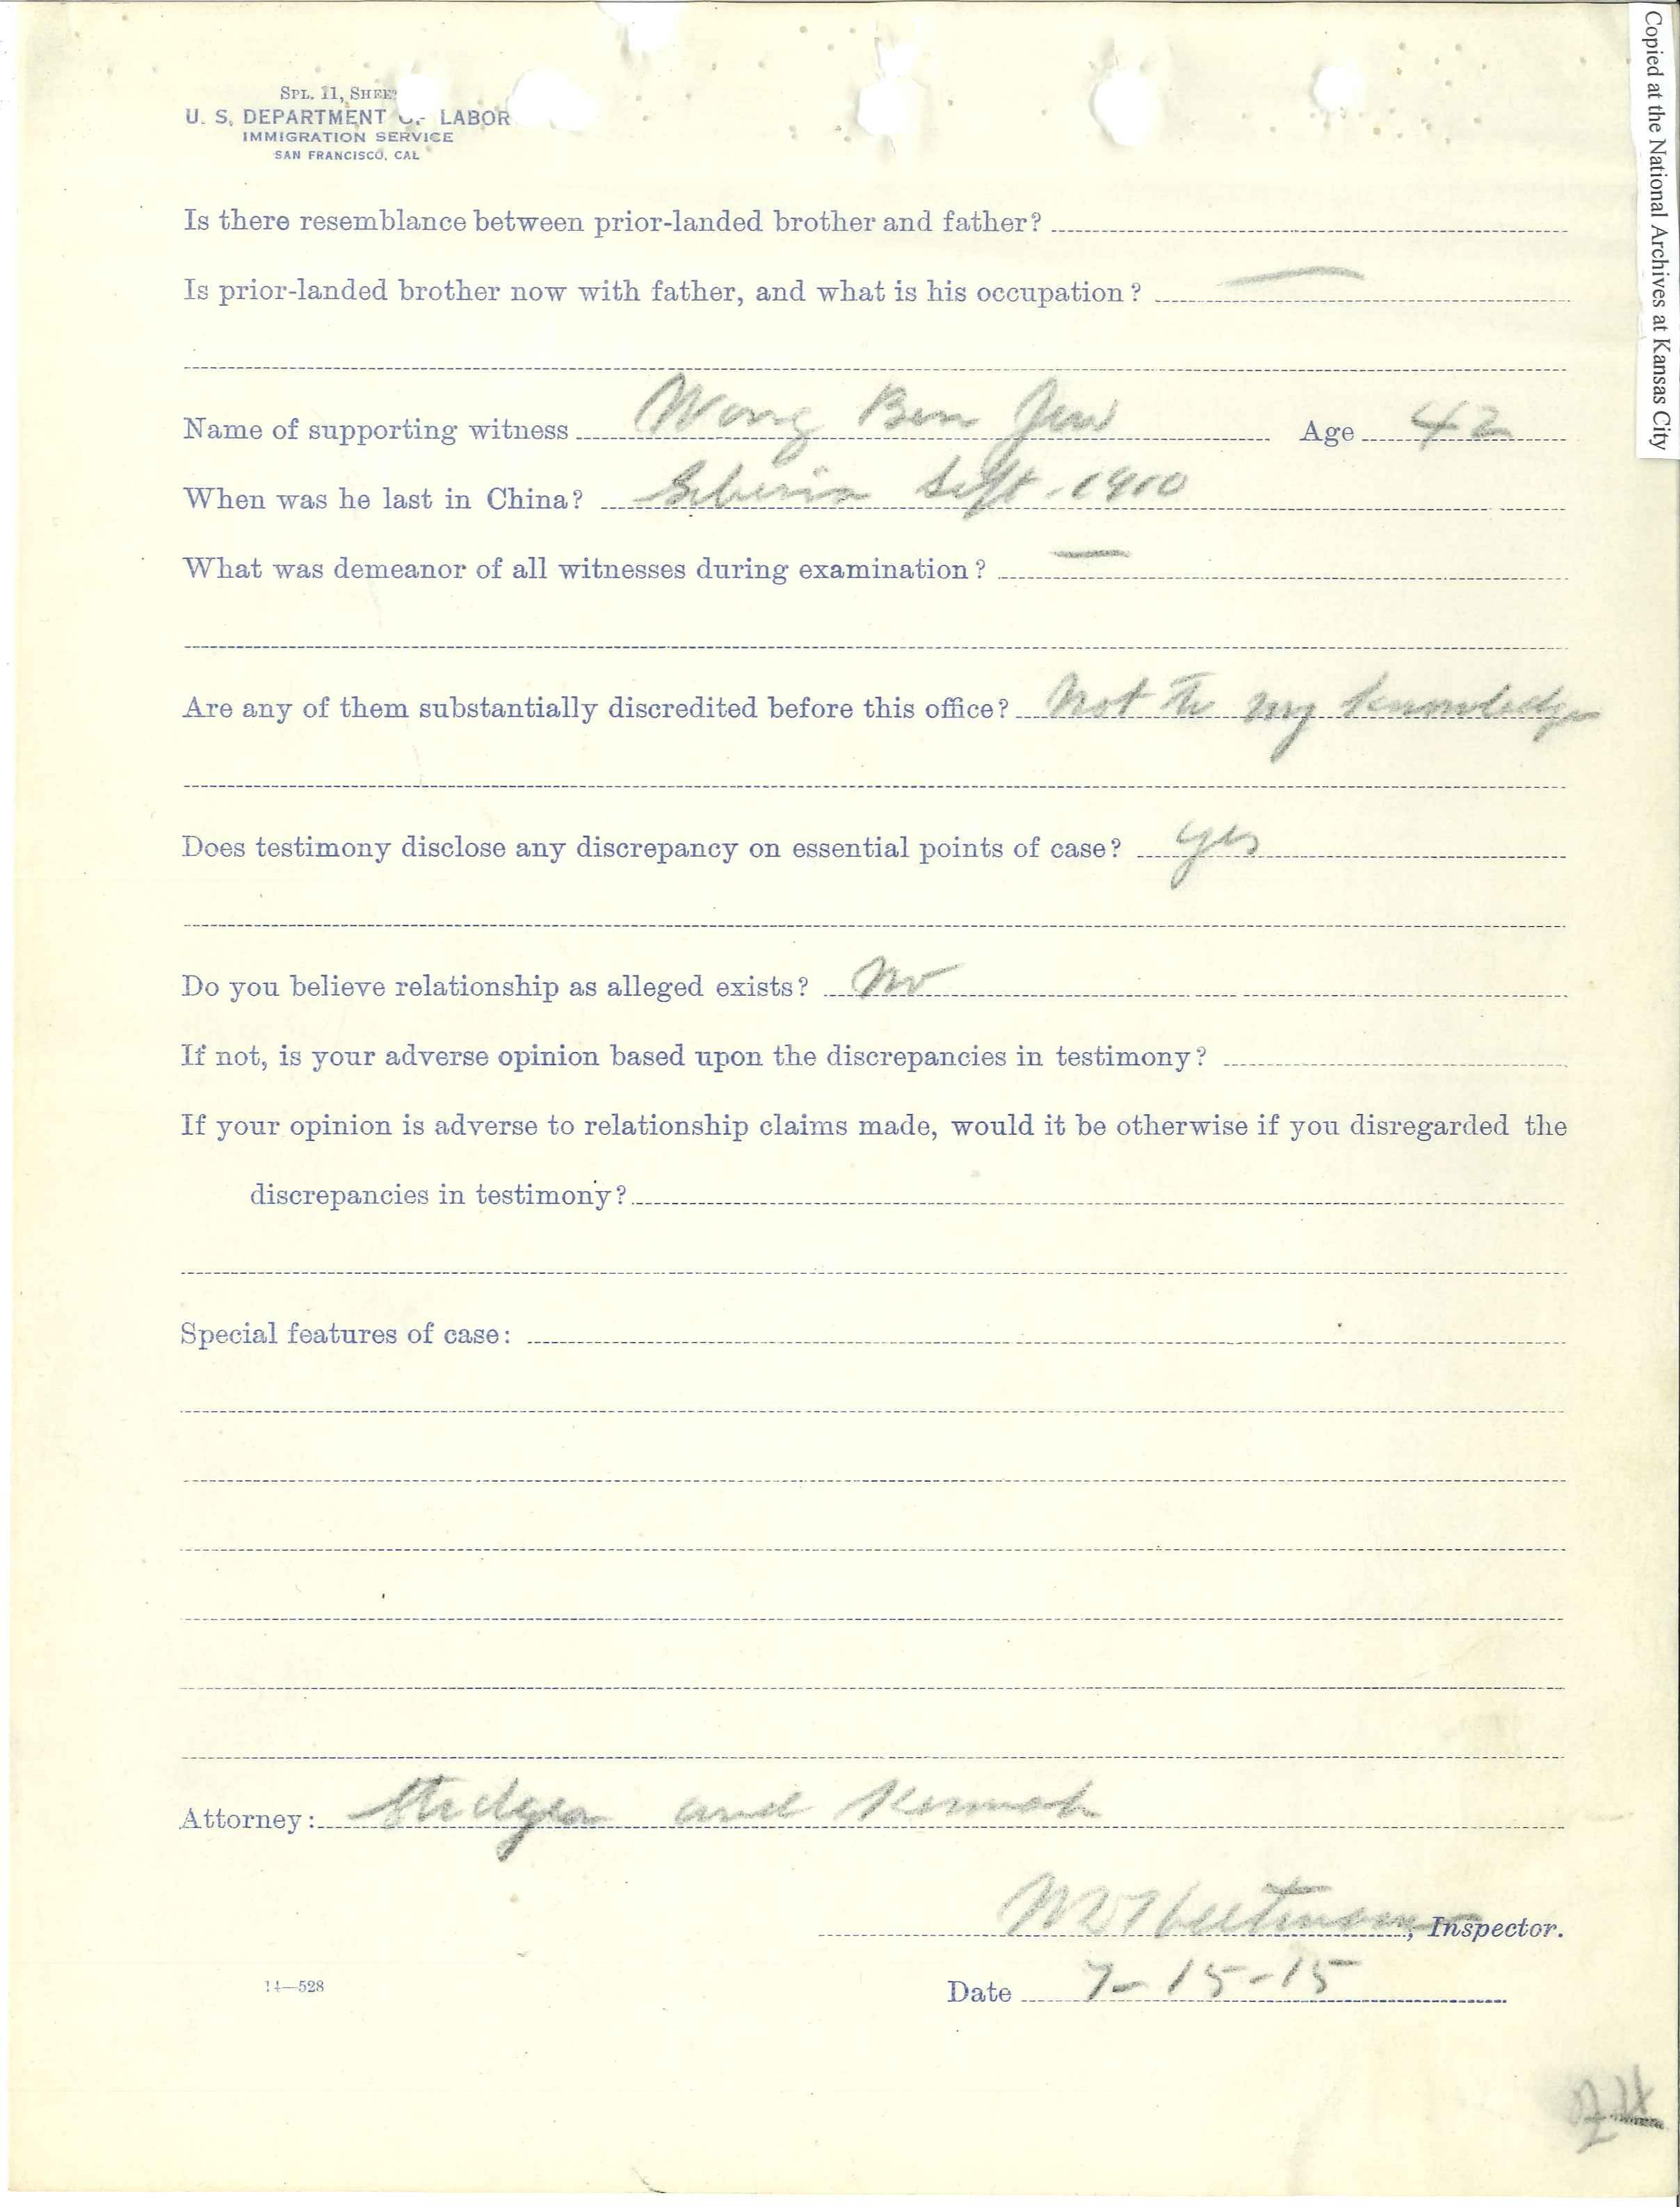 SPL. 11, SHEE
U. S. DEPARTMENT OF LABOR
IMMIGRATION SERVICE
SAN FRANCISCO, CAL
Copied at the National Archives at Kansas City
Is there resemblance between prior-landed brother and father?
Is prior-landed brother now with father, and what is his occupation? —
Name of supporting witness Wong Ben Jew Age 42
When was he last in China? Siberia Sept. 1910
What was demeanor of all witnesses during examination? —
Are any of them substantially discredited before this office? Not to my knowledge
Does testimony disclose any discrepancy on essential points of case? yes
Do you believe relationship as alleged exists? No
If not, is your adverse opinion based upon the discrepancies in testimony?
If your opinion is adverse to relationship claims made, would it be otherwise if you disregarded the
discrepancies in testimony?
Special features of case:
Attorney: and
, Inspector.
14—528
Date 7-15-15